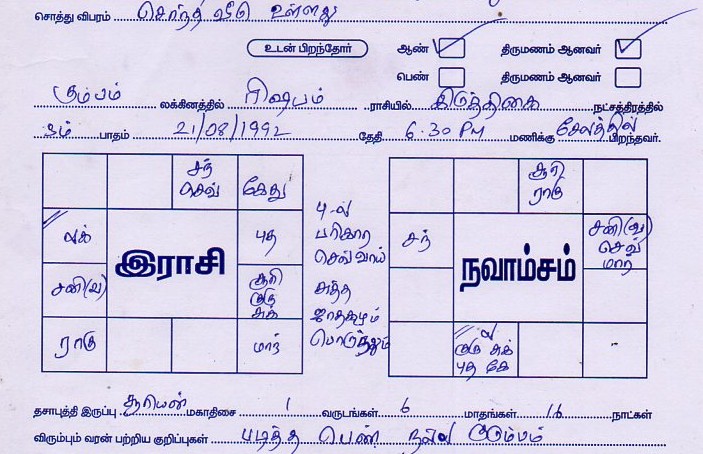 சொத்து விபரம் சொந்த வீடு உள்ளது
உடன் பிறந்தோர் ஆண் திருமணம் ஆனவர்
பெண் திருமணம் ஆனவர்
கும்பம் லக்கினத்தில் ரிஷபம் ராசியில் கிருத்திகை நட்சத்திரத்தில்
3ம் பாதம் 21/08/1992 தேதி 6.30 PM மணிக்கு சேலத்தில் பிறந்தவர்.
சந்
செவ்
கேது
லக்
புத
சனி(வ)
சூரி
குரு
சுக்
ராகு
மாந்
இராசி
4-ல்
பரிகார
செவ்வாய்
சுத்த
ஜாதகமும்
பொருந்தும்
சூரி
ராகு
சந்
சனி(வ)
செவ்
மாந்
நவாம்சம்
ல
குரு சுக்
புத கே
தசாபுத்தி இருப்பு சூரியன் மகாதிசை 1 வருடங்கள் 6 மாதங்கள் 16 நாட்கள்
விரும்பும் வரன் பற்றிய குறிப்புகள் படித்த பெண் நல்ல குடும்பம்